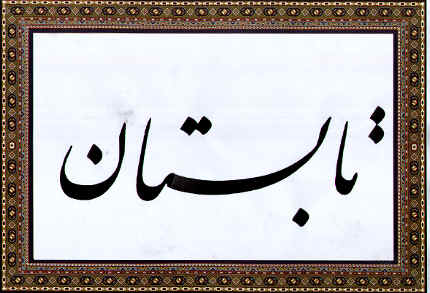 تابستان